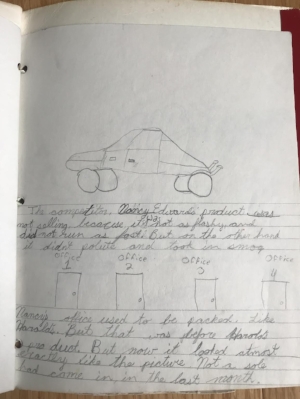 The competitor Nancy Edwards product was
not selling because it was not as flashy and
did not run as fast. But on the other hand
it didnt polute and took in smog
Office Office Office Office
1 2 3 4
Nancis office used to be packed. Like
Harolds. But that was before Harolds
product. But now it looked almost
exactly like the picture. Not a sole
had came in in the last month.